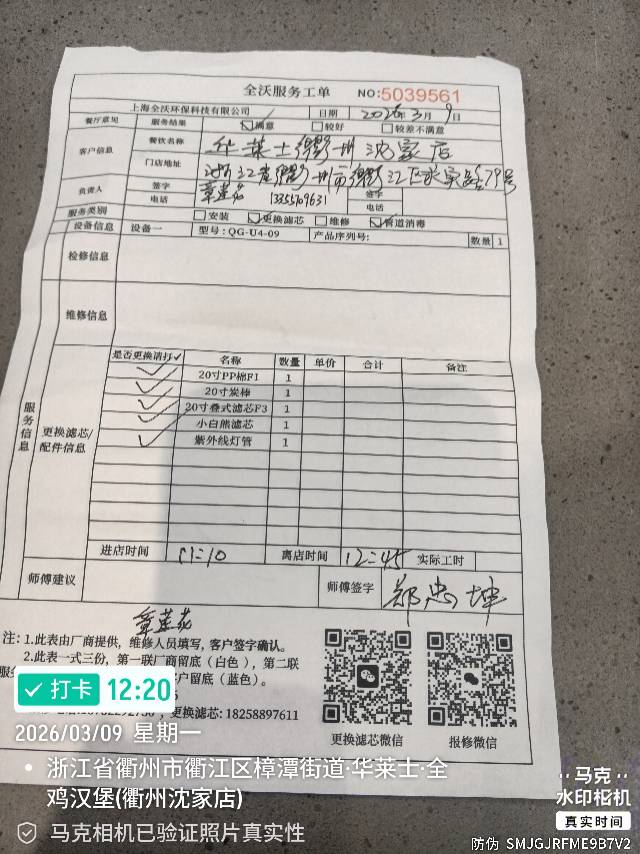 全沃服务工单 NO:5039561
上海全沃环保科技有限公司 日期 2026年3月9日
餐厅意见 服务结果 满意 较好 较差不满意
客户信息 餐饮名称 华莱士衢州沈家店
门店地址 浙江省衢州市衢江区
负责人 签字 章莲花 签字
电话 电话
服务类别 安装 更换滤芯 维修 管道消毒
设备信息 设备一 型号:QG-U4-09 产品序列号: 数量 1
检修信息
维修信息
服务信息
更换滤芯/配件信息
是否更换请打✓ 名称 数量 单价 合计 备注
✓ 20寸PP棉F1 1
✓ 20寸炭棒 1
✓ 20寸叠式滤芯F3 1
✓ 小白熊滤芯 1
✓ 紫外线灯管 1
进店时间 11:10 离店时间 12:45 实际工时
师傅建议 师傅签字 郑忠坤
章莲花
注:1.此表由厂商提供,维修人员填写,客户签字确认。
2.此表一式三份,第一联厂商留底(白色),第二联
户留底(蓝色)。
更换滤芯:18258897611
更换滤芯微信 报修微信
打卡 12:20
2026/03/09 星期一
浙江省衢州市衢江区樟潭街道·华莱士·全
鸡汉堡(衢州沈家店)
马克相机已验证照片真实性
马克
水印相机
真实时间
防伪 SMJGJRFME9B7V2